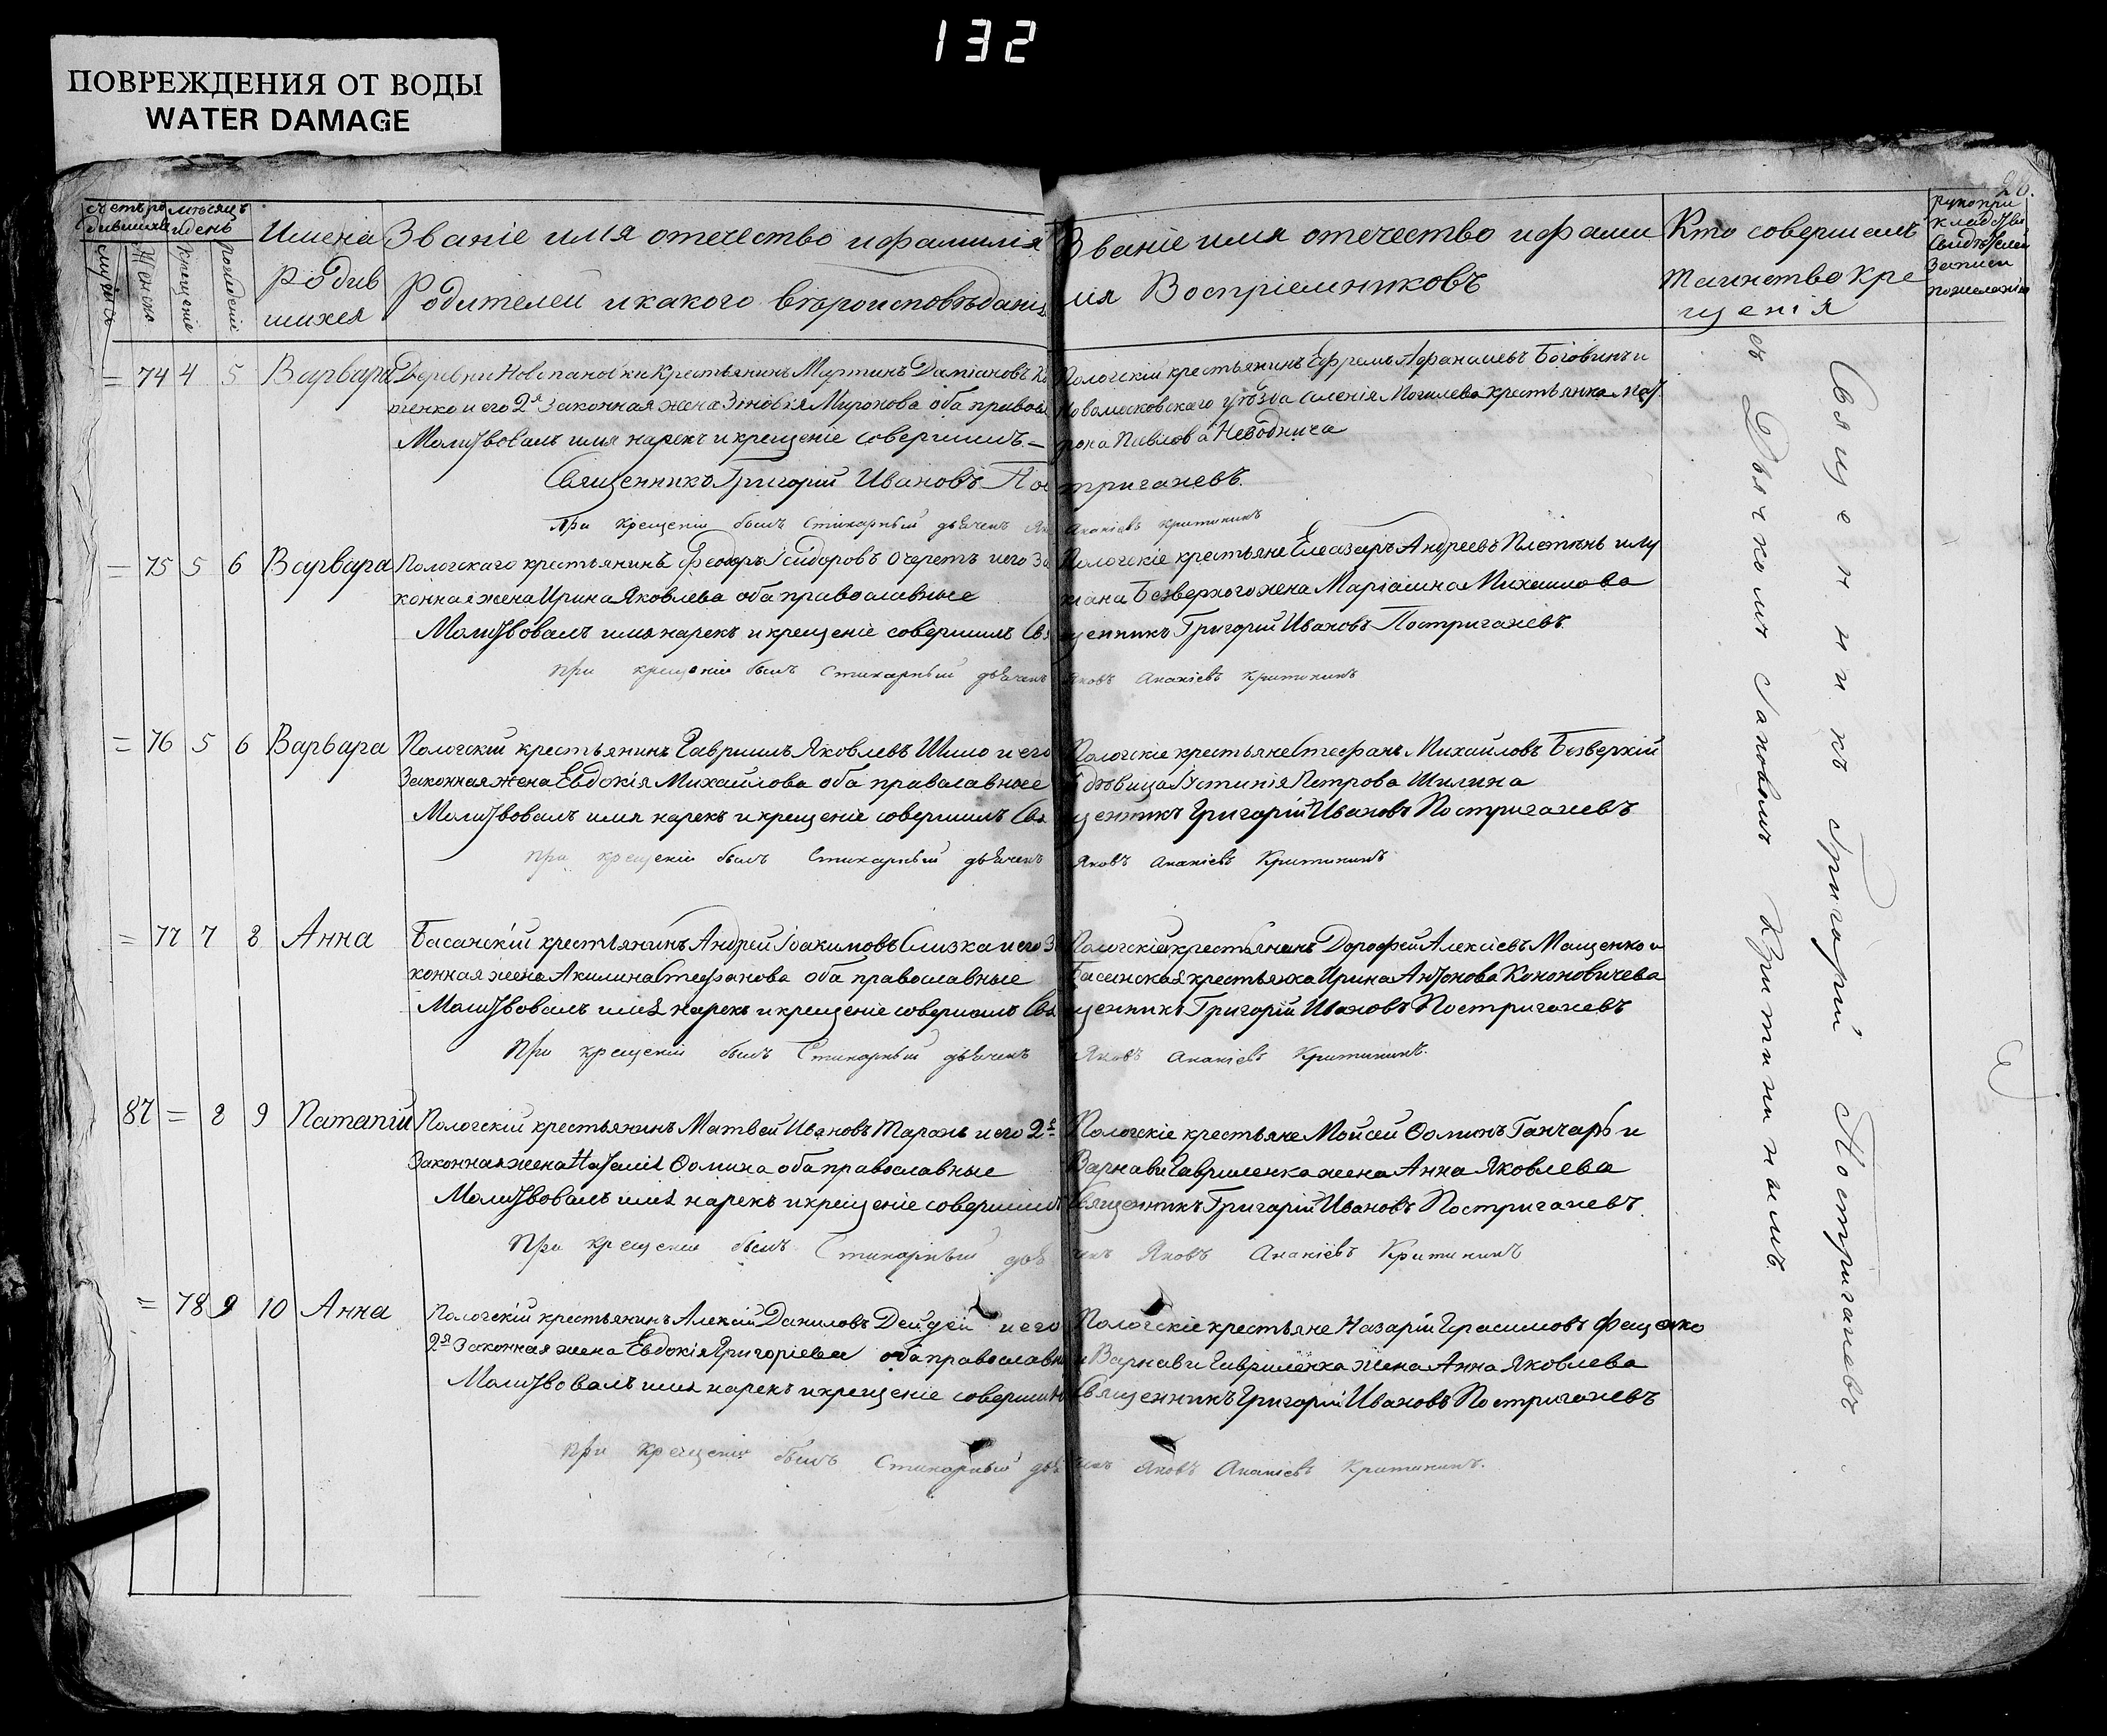 132
ПОВРЕЖДЕНИЯ ОТ ВОДЫ
WATER DAMAGE
28.
Счетъ ро
дившихся
месяцъ
и день
Мужеска
Женска
Крещенiе
Рожденiй
Имена
родив
шихся
Званіе имя отечество и фамилія
Родителей и какого вѣроисповѣданія
Званіе имя отечество и фами
лія Воспріемниковъ
Кто совершалъ
таинство кре
щенія
рукопри
кладство
свидѣтелей
записи
по желанію
= 74 4 5 Варвара
Деревни Новспановки Крестьянинъ Мартинъ Даміановъ
тенко и его 2я законная жена Зѵновія Миронова оба правос
Молитвовалъ имя нарекъ и крещеніе совершилъ =
Священникъ Григорій Ивановъ Постригачевъ.
при крещеніи былъ Стихарный дьячекъ Ананіевъ Критининъ
Пологскій крестьянинъ Ефремъ Афанасиевъ Боговинъ и
Новомосковскаго уѣзда селенія Могилева крестьянка Мат
рона Павлова Неводнича
= 75 5 6 Варвара
Пологскаго крестьянинъ Феодоръ Ісидоровъ Очеретъ и его За
конная жена Ирина Яковлева оба православные
Молитвовалъ имя нарекъ и крещеніе совершилъ Священникъ Григорій Ивановъ Постригачевъ.
при крещеніи былъ Стихарный дьячекъ Яковъ Ананіевъ Критининъ
Пологскіе крестьяне Елеазаръ Андреевъ Плетѣнь и Лу
кіана Безверхого жена Маріамна Михаилова
= 76 5 6 Варвара
Пологскій крестьянинъ Гавриилъ Яковлевъ Шило и его
Законная жена Евдокія Михайлова оба православные
Молитвовалъ имя нарекъ и крещеніе совершилъ Священникъ Григорій Ивановъ Постригачевъ
при крещеніи былъ Стихарный дьячекъ Яковъ Ананіевъ Критининъ
Пологскіе крестьяне Стефанъ Михайловъ Безверхій
дѣвица Іустинія Петрова Шилина
= 77 7 8 Анна
Басанскій крестьянинъ Андрей Іоакимовъ Слизка и его З
конная жена Акилина Стефанова оба православные
Молитвовалъ имя нарекъ и крещеніе совершилъ Священникъ Григорій Ивановъ Постригачевъ
При крещеніи былъ Стихарный дьячекъ Яковъ Ананіевъ Критининъ.
Пологскій крестьянинъ Дорофей Алексіевъ Мащенко и
Басанская крестьянка Ирина Антонова Кононовичева
87 = 8 9 Патапій
Пологскій крестьянинъ Матвей Ивановъ Таранъ и его 2я
Законная жена Наталія Ѳомина оба православные
Молитвовалъ имя нарекъ и крещеніе совершилъ Священникъ Григорій Ивановъ Постригачевъ
При крещеніи былъ Стихарный дьячекъ Яковъ Ананіевъ Критининъ
Пологскіе крестьяне Мойсей Ѳоминъ Ганчаръ и
Варнави Гавриленка жена Анна Яковлева
= 78 9 10 Анна
Пологскій крестьянинъ Алексій Даниловъ Дейдей и его
2я Законная жена Евдокія Григоріева оба православн
Молитвовалъ имя нарекъ и крещеніе совершилъ Священникъ Григорій Ивановъ Постригачевъ
при крещеніи былъ Стихарный дьячекъ Яковъ Ананіевъ Критининъ.
Пологскіе крестьяне Назарій Герасимовъ Фещенко
и Варнави Гавриленка жена Анна Яковлева
Священникъ Григорій Постригачевъ
съ Дьячкомъ Яковомъ Критининымъ.